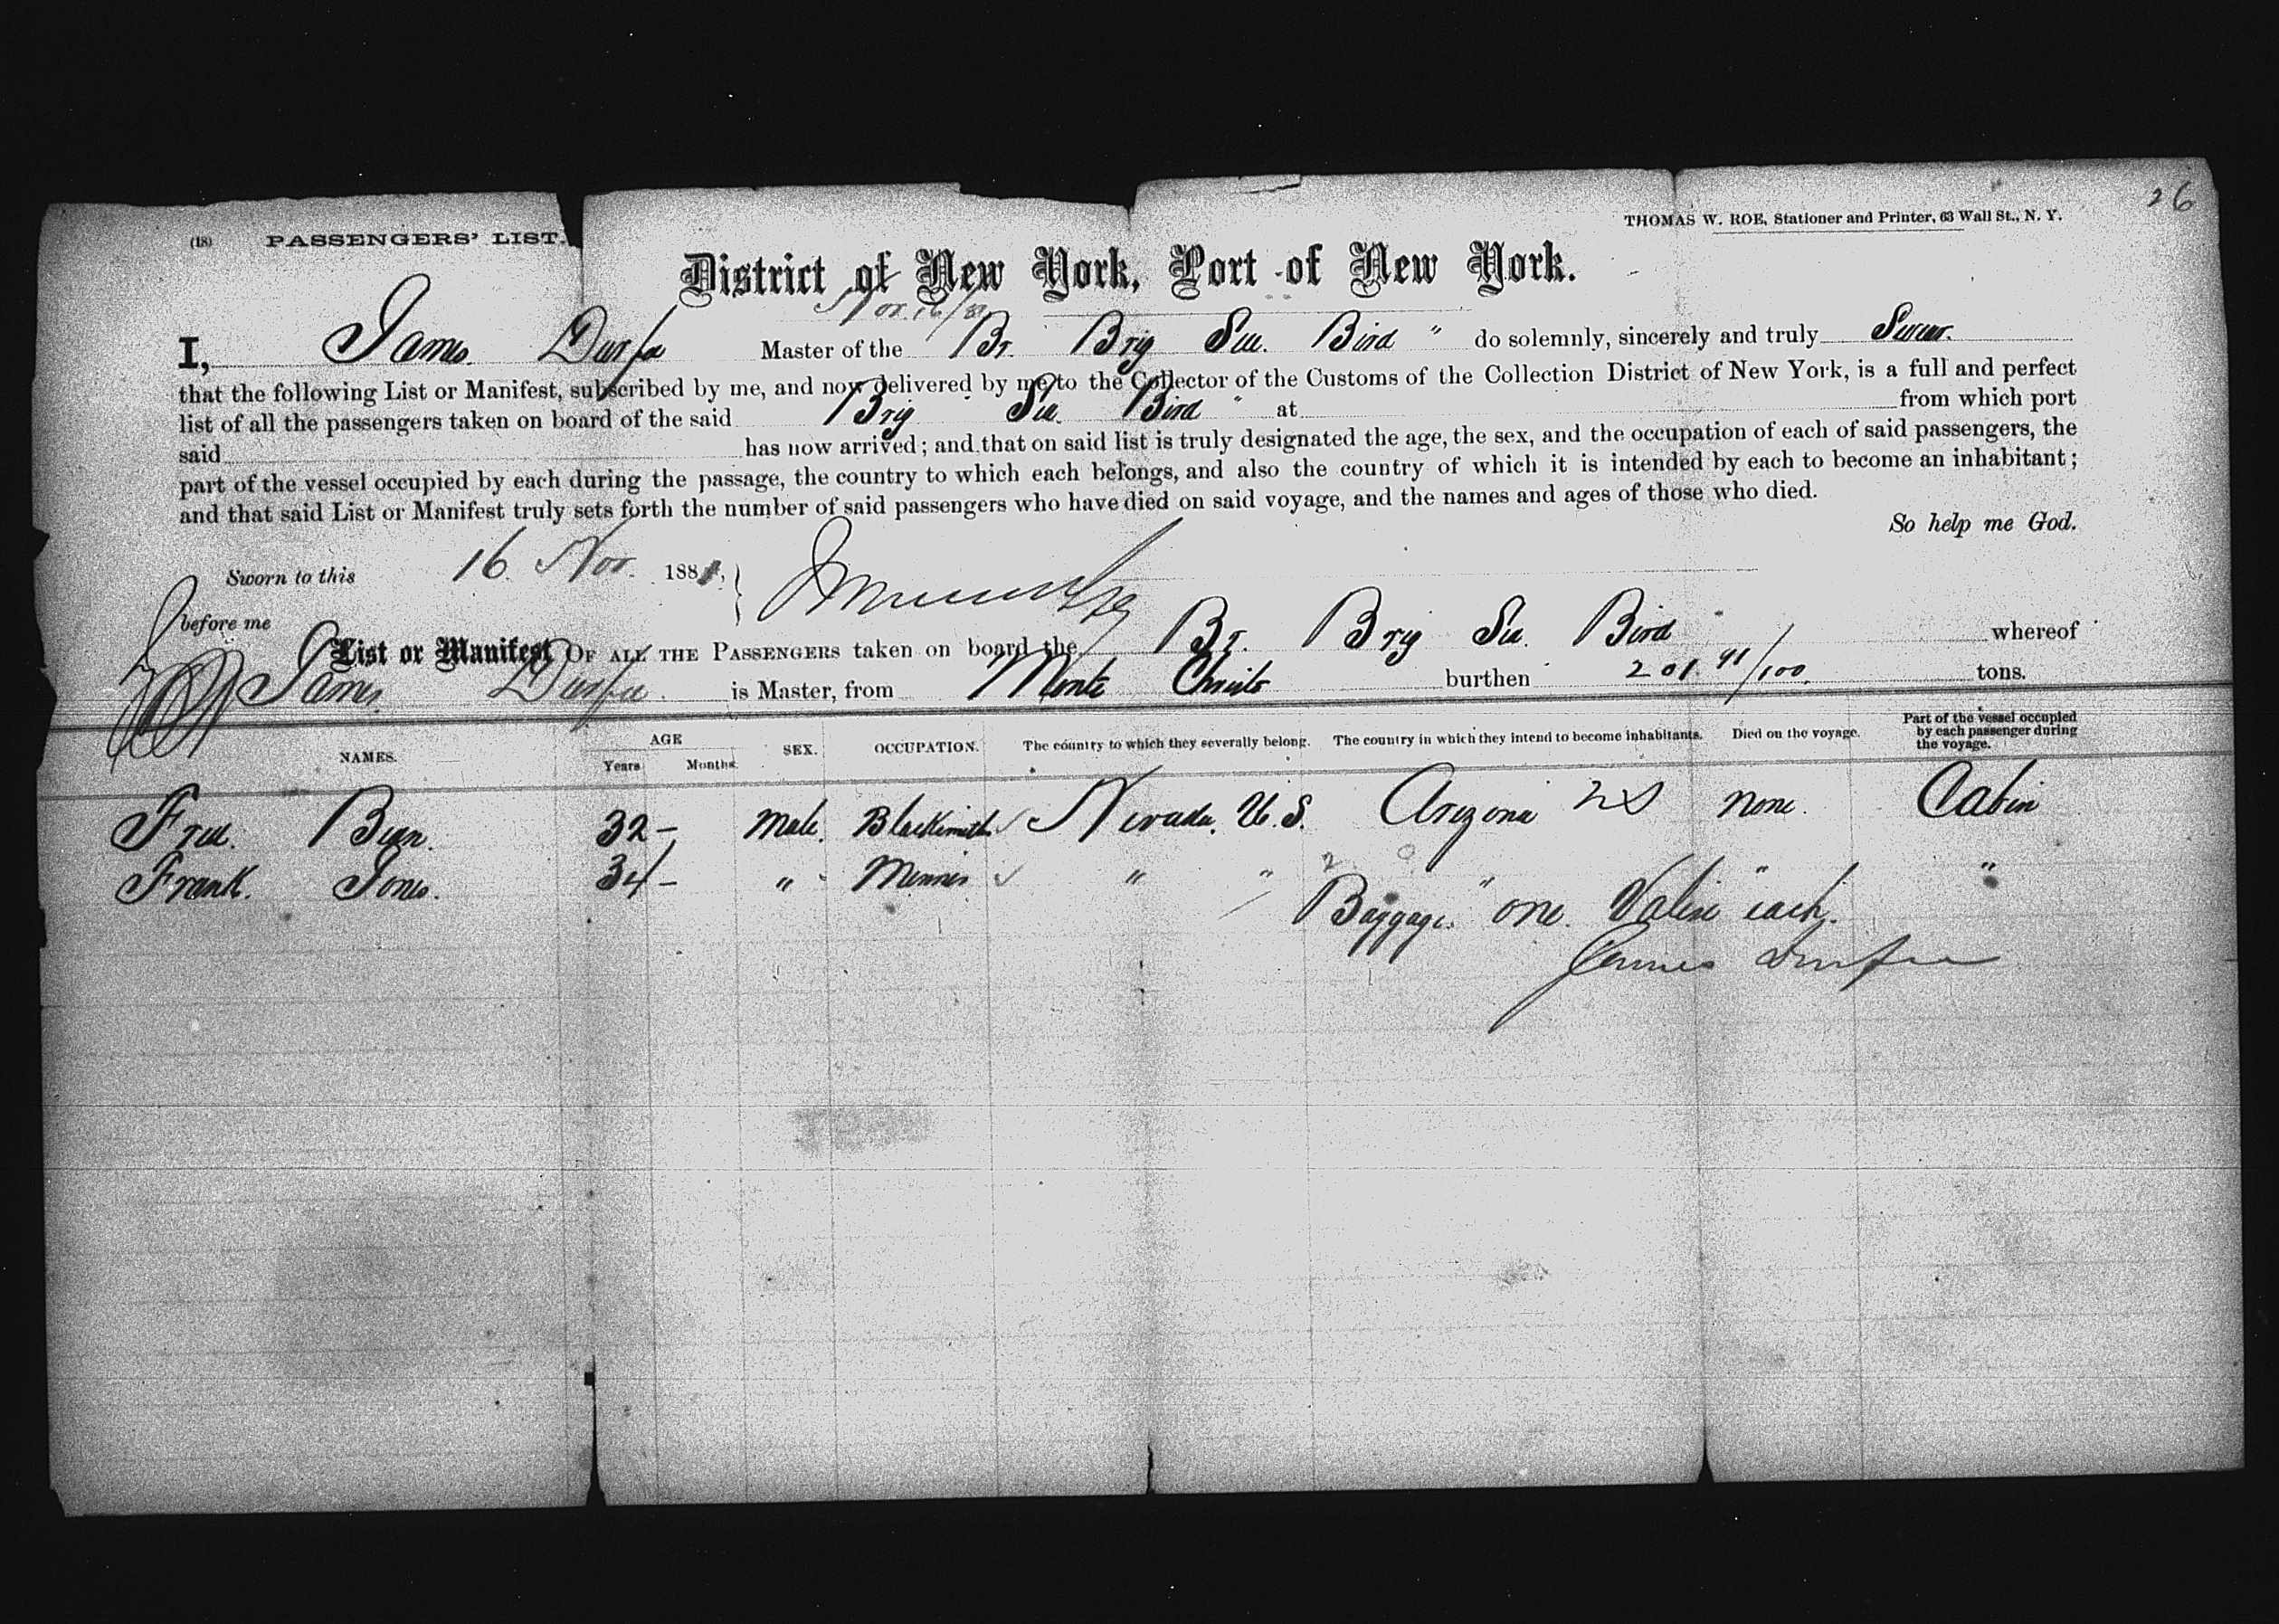 26
(18) PASSENGERS' LIST. THOMAS W. ROE, Stationer and Printer, 63 Wall St., N. Y.
District of New York, Port of New York.
Nov. 16/81
I, James Durfee Master of the "Br. Brig Sea Bird" do solemnly, sincerely and truly Swear.
that the following List or Manifest, subscribed by me, and now delivered by me to the Collector of the Customs of the Collection District of New York, is a full and perfect
list of all the passengers taken on board of the said Brig "Sea Bird" at from which port
said has now arrived; and that on said list is truly designated the age, the sex, and the occupation of each of said passengers, the
part of the vessel occupied by each during the passage, the country to which each belongs, and also the country of which it is intended by each to become an inhabitant;
and that said List or Manifest truly sets forth the number of said passengers who have died on said voyage, and the names and ages of those who died.
So help me God.
Sworn to this 16. Nov. 1881,
before me
List or Manifest OF ALL THE PASSENGERS taken on board the Br. Brig Sea Bird" whereof
James Durfee is Master, from Monte Christo burthen 201. 91/100. tons.
NAMES. AGE Years Months. SEX. OCCUPATION. The country to which they severally belong. The country in which they intend to become inhabitants. Died on the voyage. Part of the vessel occupied by each passenger during the voyage.
Fred. Bean. 32 - Male. Blacksmith. Nevada. U. S. Arizona U S none. Cabin
Frank. Jones. 34 - " " " " " "
Baggage. one. Valise each.
James Durfee